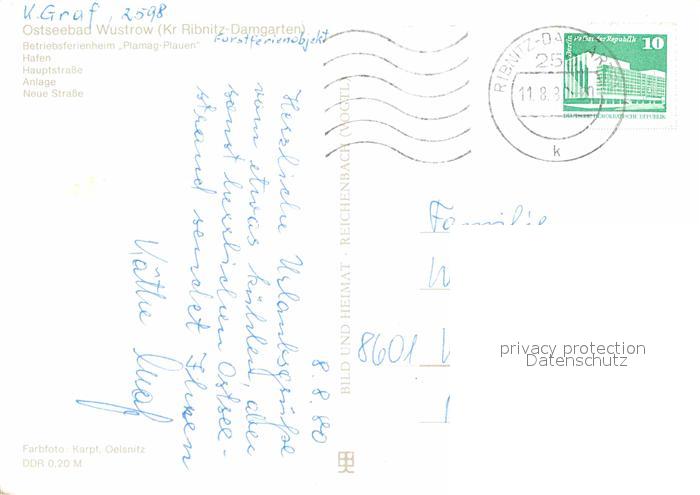 K. Graf, 2598
Ostseebad Wustrow (Kr Ribnitz-Damgarten)
Forstferienobjekt
Betriebsferienheim „Plamag-Plauen"
Hafen
Hauptstraße
Anlage
Neue Straße
8.8.80
Herzliche Urlaubsgrüße
vom etwas kühlen, aber
sonst herrlichen Ostsee-
strand sendet Ihnen
Käthe Graf
BILD UND HEIMAT · REICHENBACH (VOGTL
RIBNITZ-DA
25
11.8.8
k
Berlin, Palast der Republik 10
DEUTSCHE DEMOKRATISCHE REPUBLIK
Familie
W
8601
privacy protection
Datenschutz
Farbfoto: Karpf, Oelsnitz
DDR 0,20 M